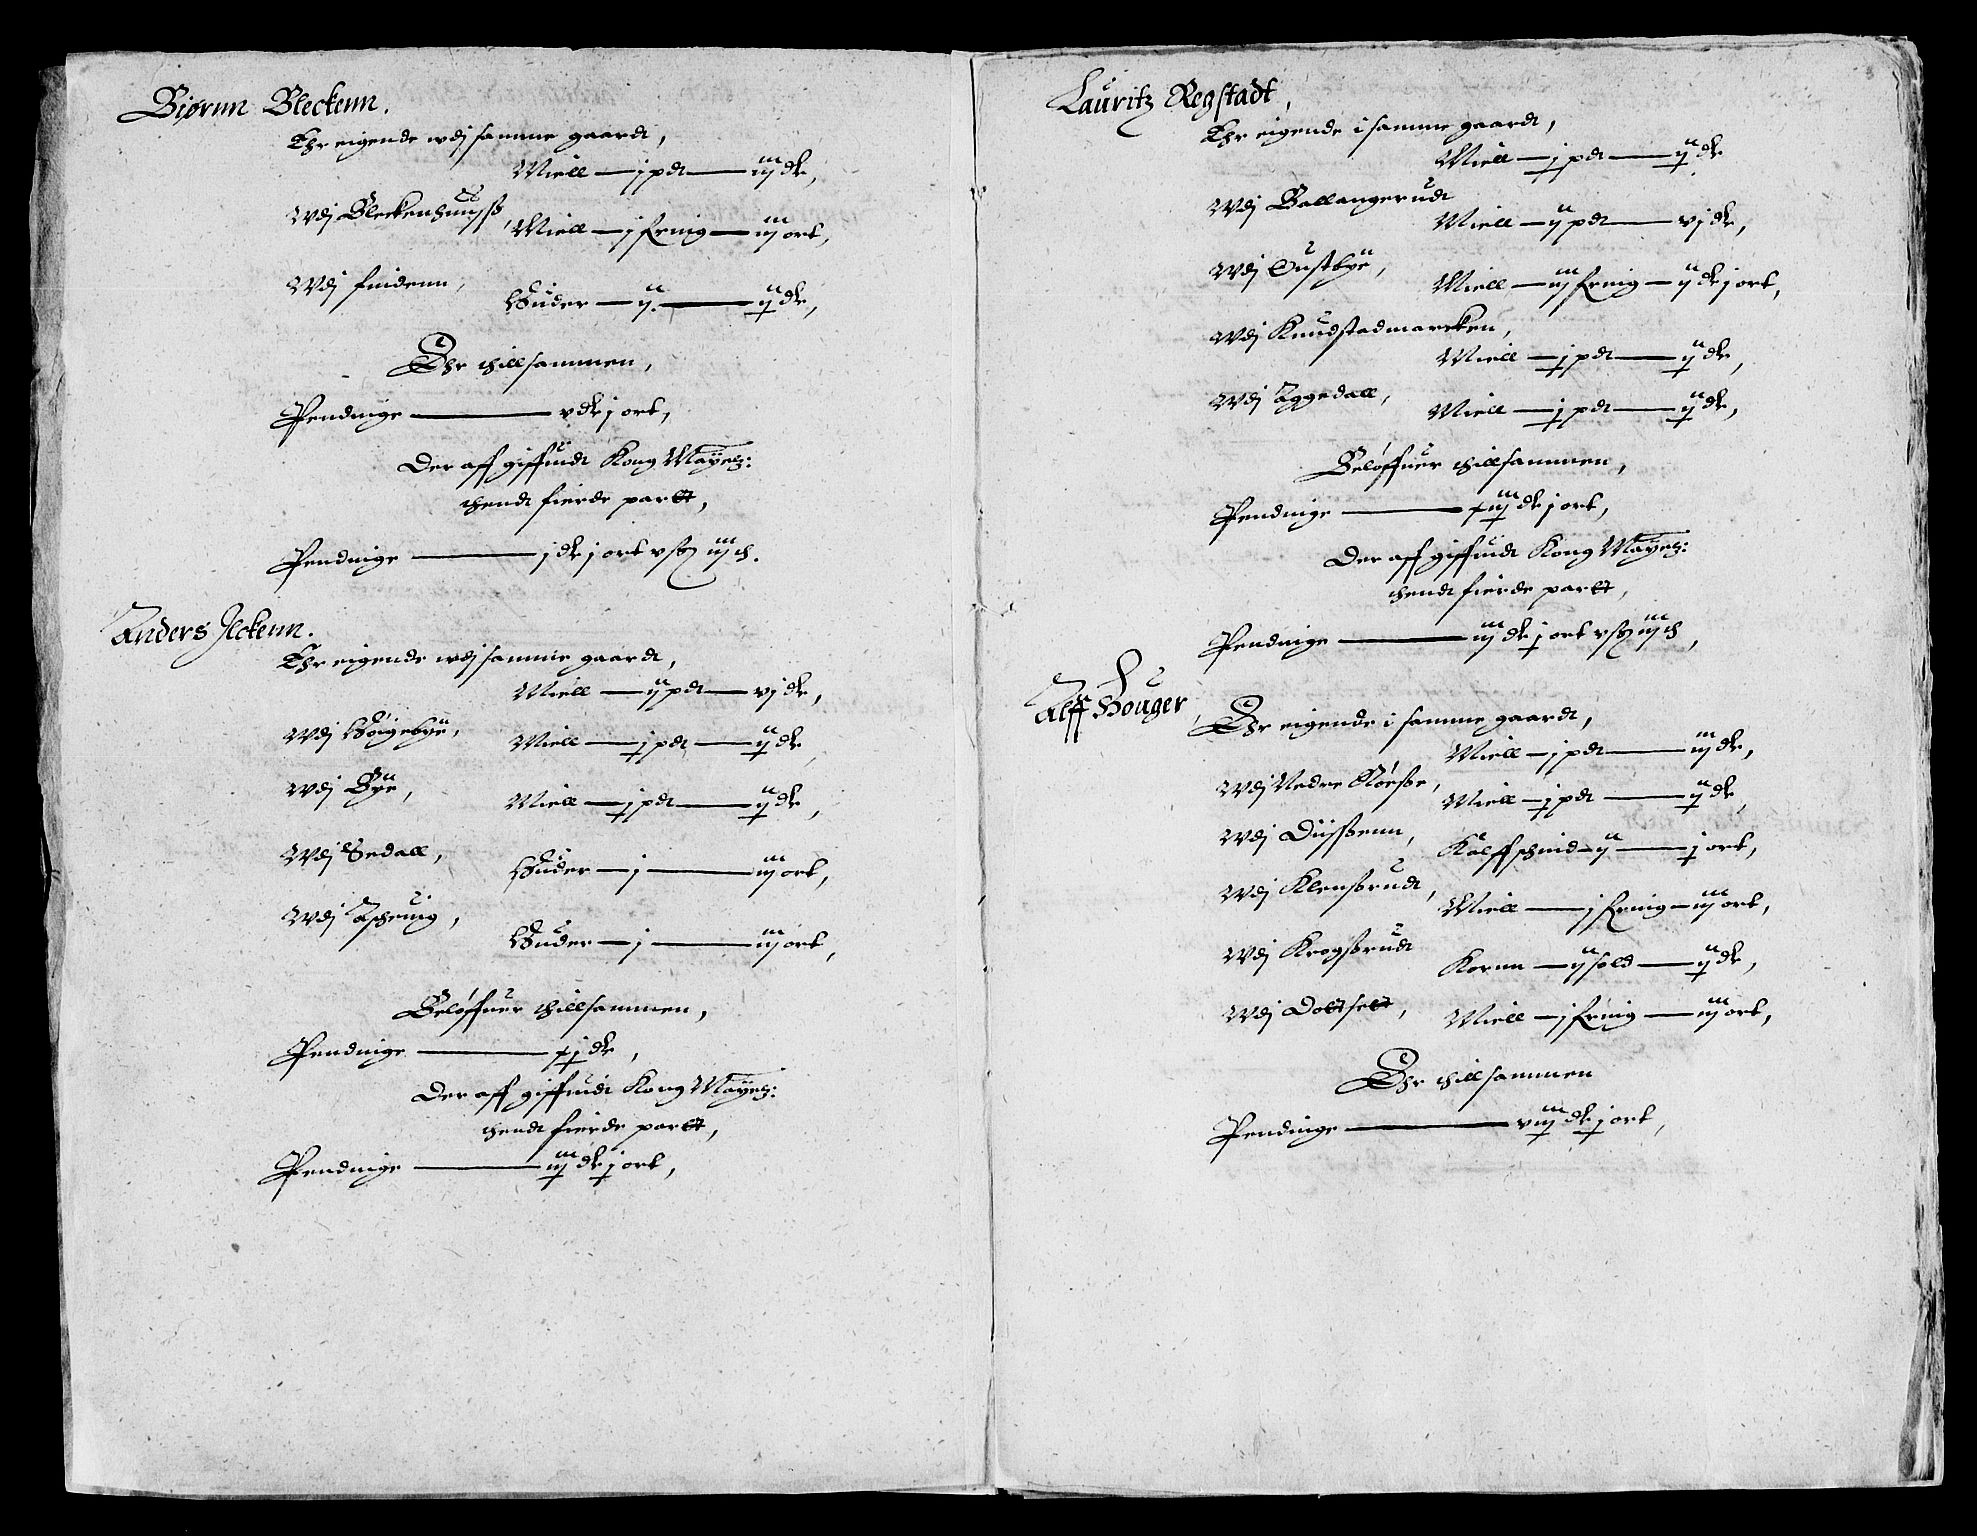 Biørnn Bleckenn.
Ehr eigende wdj samme gaardt,
Miell — j pdt — iij dr,
Wdj Bleckenhuuss,
Miell — j frnig — iij ort,
Wdj findenn,
Huder — ij. — ij dr,
Ehr thillsammen,
Pendinge — v dr j ort,
Der aff giffuidt Kong Mayetz:
thendt fierde partt,
Pendinge — j dr j ort v sß iij ch.
Anders Jlckenn.
Ehr eigende wdj samme gaardt,
Miell — ij pdt — vj dr,
Wdj Høigebye,
Miell — j pdt — ij dr,
Wdj Bye,
Miell — j pdt — ij dr,
Wdj Sedall,
Huder — j — iij ort,
Wdj Aschuig,
Huder — j — iij ort,
Beløffuer thillsammen,
Pendinge — xj dr,
Der aff giffuidt Kong Mayetz:
thendt fierde partt,
Pendinge — iij dr j ort,
Lauritz Regstadt,
Ehr eigende i samme gaardt,
Miell — j pdt — ij dr
Wdj Ballangerudt
Miell — ij pdt — vj dr,
Wdj Oustbye,
Miell — iij frnig — ij dr j ort,
Wdj Knudstadmarcken,
Miell — j pdt — ij dr,
Wdj Aggedall,
Miell — j pdt — ij dr,
Beløffuer thillsammen,
Pendinge — xiij dr j ort,
Der aff giffuidt Kong Mayetz:
thendt fierde partt,
Pendinge — iij dr j ort v sß iij ch,
Alff Houger,
Ehr eigende i samme gaardt,
Miell — j pdt — iij dr,
Wdj Nedre Røesse,
Miell — j pdt — ij dr,
Wdj Diissenn,
Kalffschind — ij — j ort,
Wdj Klensrudt,
Miell — j frnig — iij ort,
Wdj Krogsrudt
Kornn — ij sold — ij dr,
Wdj Dottsett,
Miell — j frnig — iij ort,
Ehr thillsammen
Pendinge — viij dr j ort,